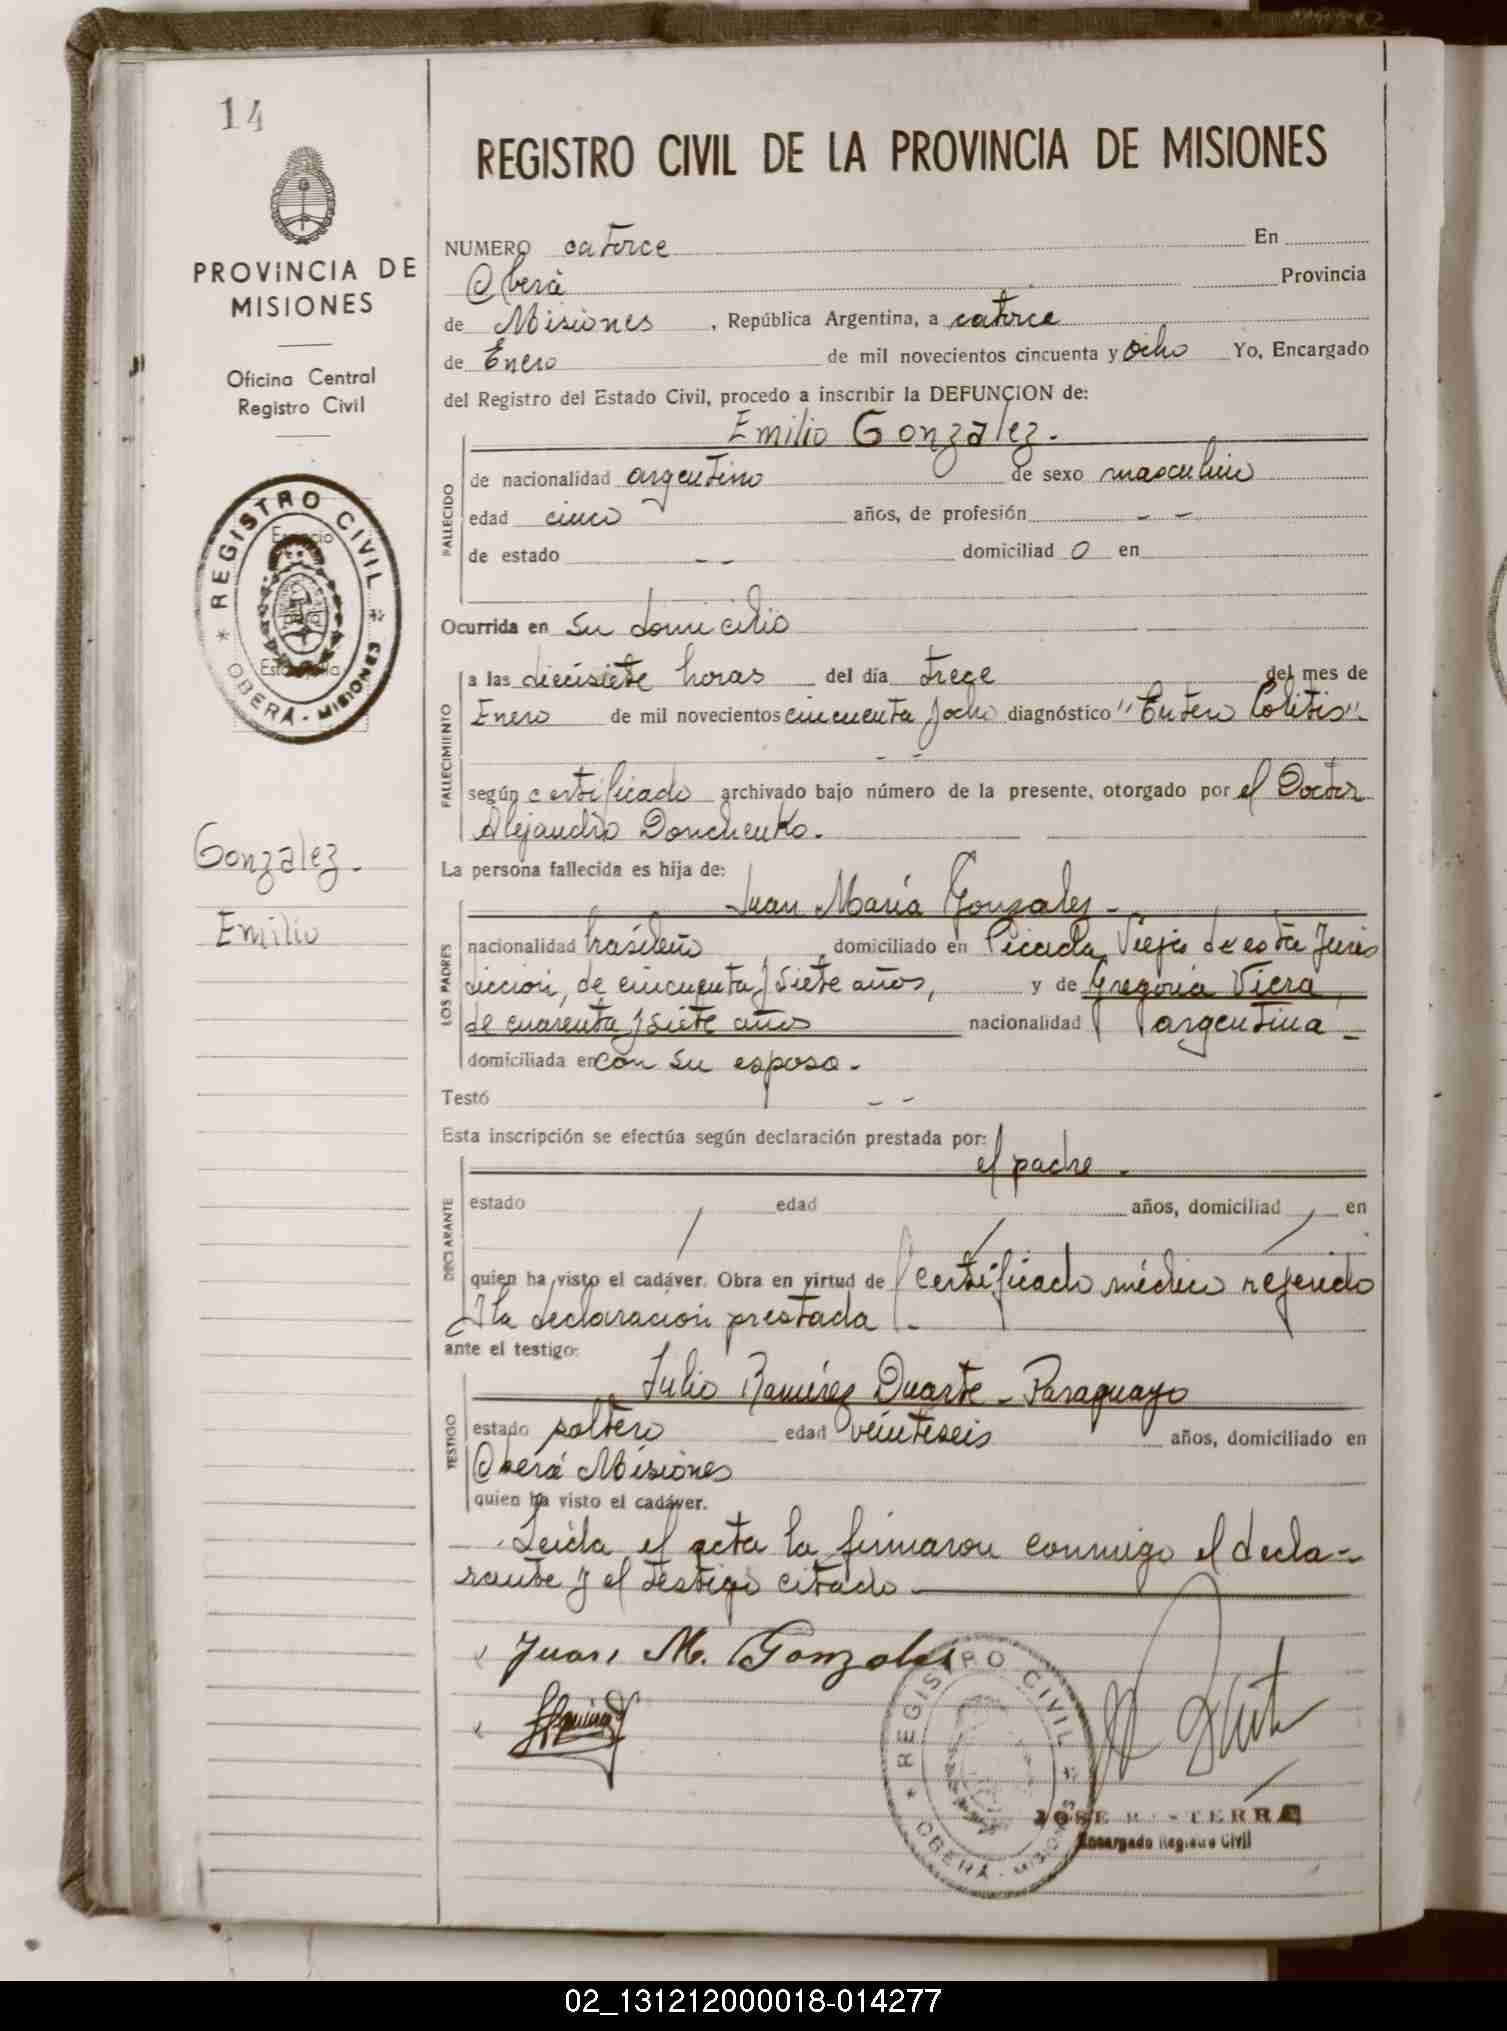 14
PROVINCIA DE
MISIONES
Oficina Central
Registro Civil
REGISTRO CIVIL
OBERÁ - MISIONES
Gonzalez.
Emilio
REGISTRO CIVIL DE LA PROVINCIA DE MISIONES
NUMERO catorce En
Oberá Provincia
de Misiones, República Argentina, a catorce
de Enero de mil novecientos cincuenta y ocho Yo, Encargado
del Registro del Estado Civil, procedo a inscribir la DEFUNCION de:
Emilio Gonzalez.
FALLECIDO
de nacionalidad argentino de sexo masculino
edad cinco años, de profesión - -
de estado - - domiciliad o en
Ocurrida en su domicilio
FALLECIMIENTO
a las diecisiete horas del día trece del mes de
Enero de mil novecientos cincuenta y ocho diagnóstico "Entero Colitis".
- -
según certificado archivado bajo número de la presente, otorgado por el Doctor
Alejandro Donchenko.
La persona fallecida es hija de:
Juan María Gonzales -
LOS PADRES
nacionalidad brasileño domiciliado en Picada Vieja de esta Juris
diccion, de cincuenta y siete años, y de Gregoria Viera,
de cuarenta y siete años nacionalidad argentina -
domiciliada en con su esposo -
Testó - -
Esta inscripción se efectúa según declaración prestada por:
el padre -
DECLARANTE
estado / edad / años, domiciliad / en
quien ha visto el cadáver. Obra en virtud de certificado médico referido
y la declaracion prestada -
ante el testigo:
Julio Ramírez Duarte - Paraguayo
TESTIGO
estado soltero edad veintiseis años, domiciliado en
Oberá Misiones
quien ha visto el cadáver.
- Leída el acta la firmaron conmigo el decla-
rante y el testigo citado
Juan M. Gonzales
REGISTRO CIVIL
OBERÁ - MISIONES
JOSE
Encargado Registro Civil
02_131212000018-014277